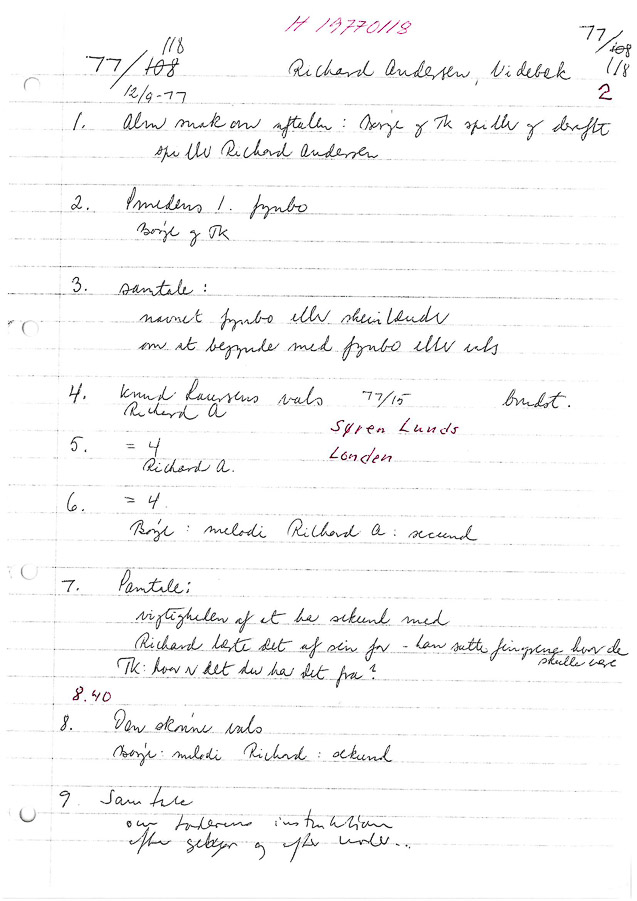 H 19770118
118
77/108
77/108
118
Richard Andersen, Videbæk
2
12/9-77
1. Alm snak om aftalen: Børge og TK spiller og derefter
spiller Richard Andersen
2. Smedens 1. fynbo
Børge og TK
3. samtale:
navnet fynbo eller
om at begynde med fynbo eller vals
4. Knud Laursens vals 77/15 brudst.
Richard A
Søren Lunds
5. = 4
Londen
Richard A.
6. = 4
Børge: melodi Richard A: secund
7. Samtale:
vigtigheden af at ha sekund med
Richard lærte det af sin far - han satte fingrene hvor de
skulle være
TK: hvor er det du har det fra?
8.40
8. Den skønne vals
Børge: melodi Richard: sekund
9 Samtale
om faderens instruktion
efter og efter noder...